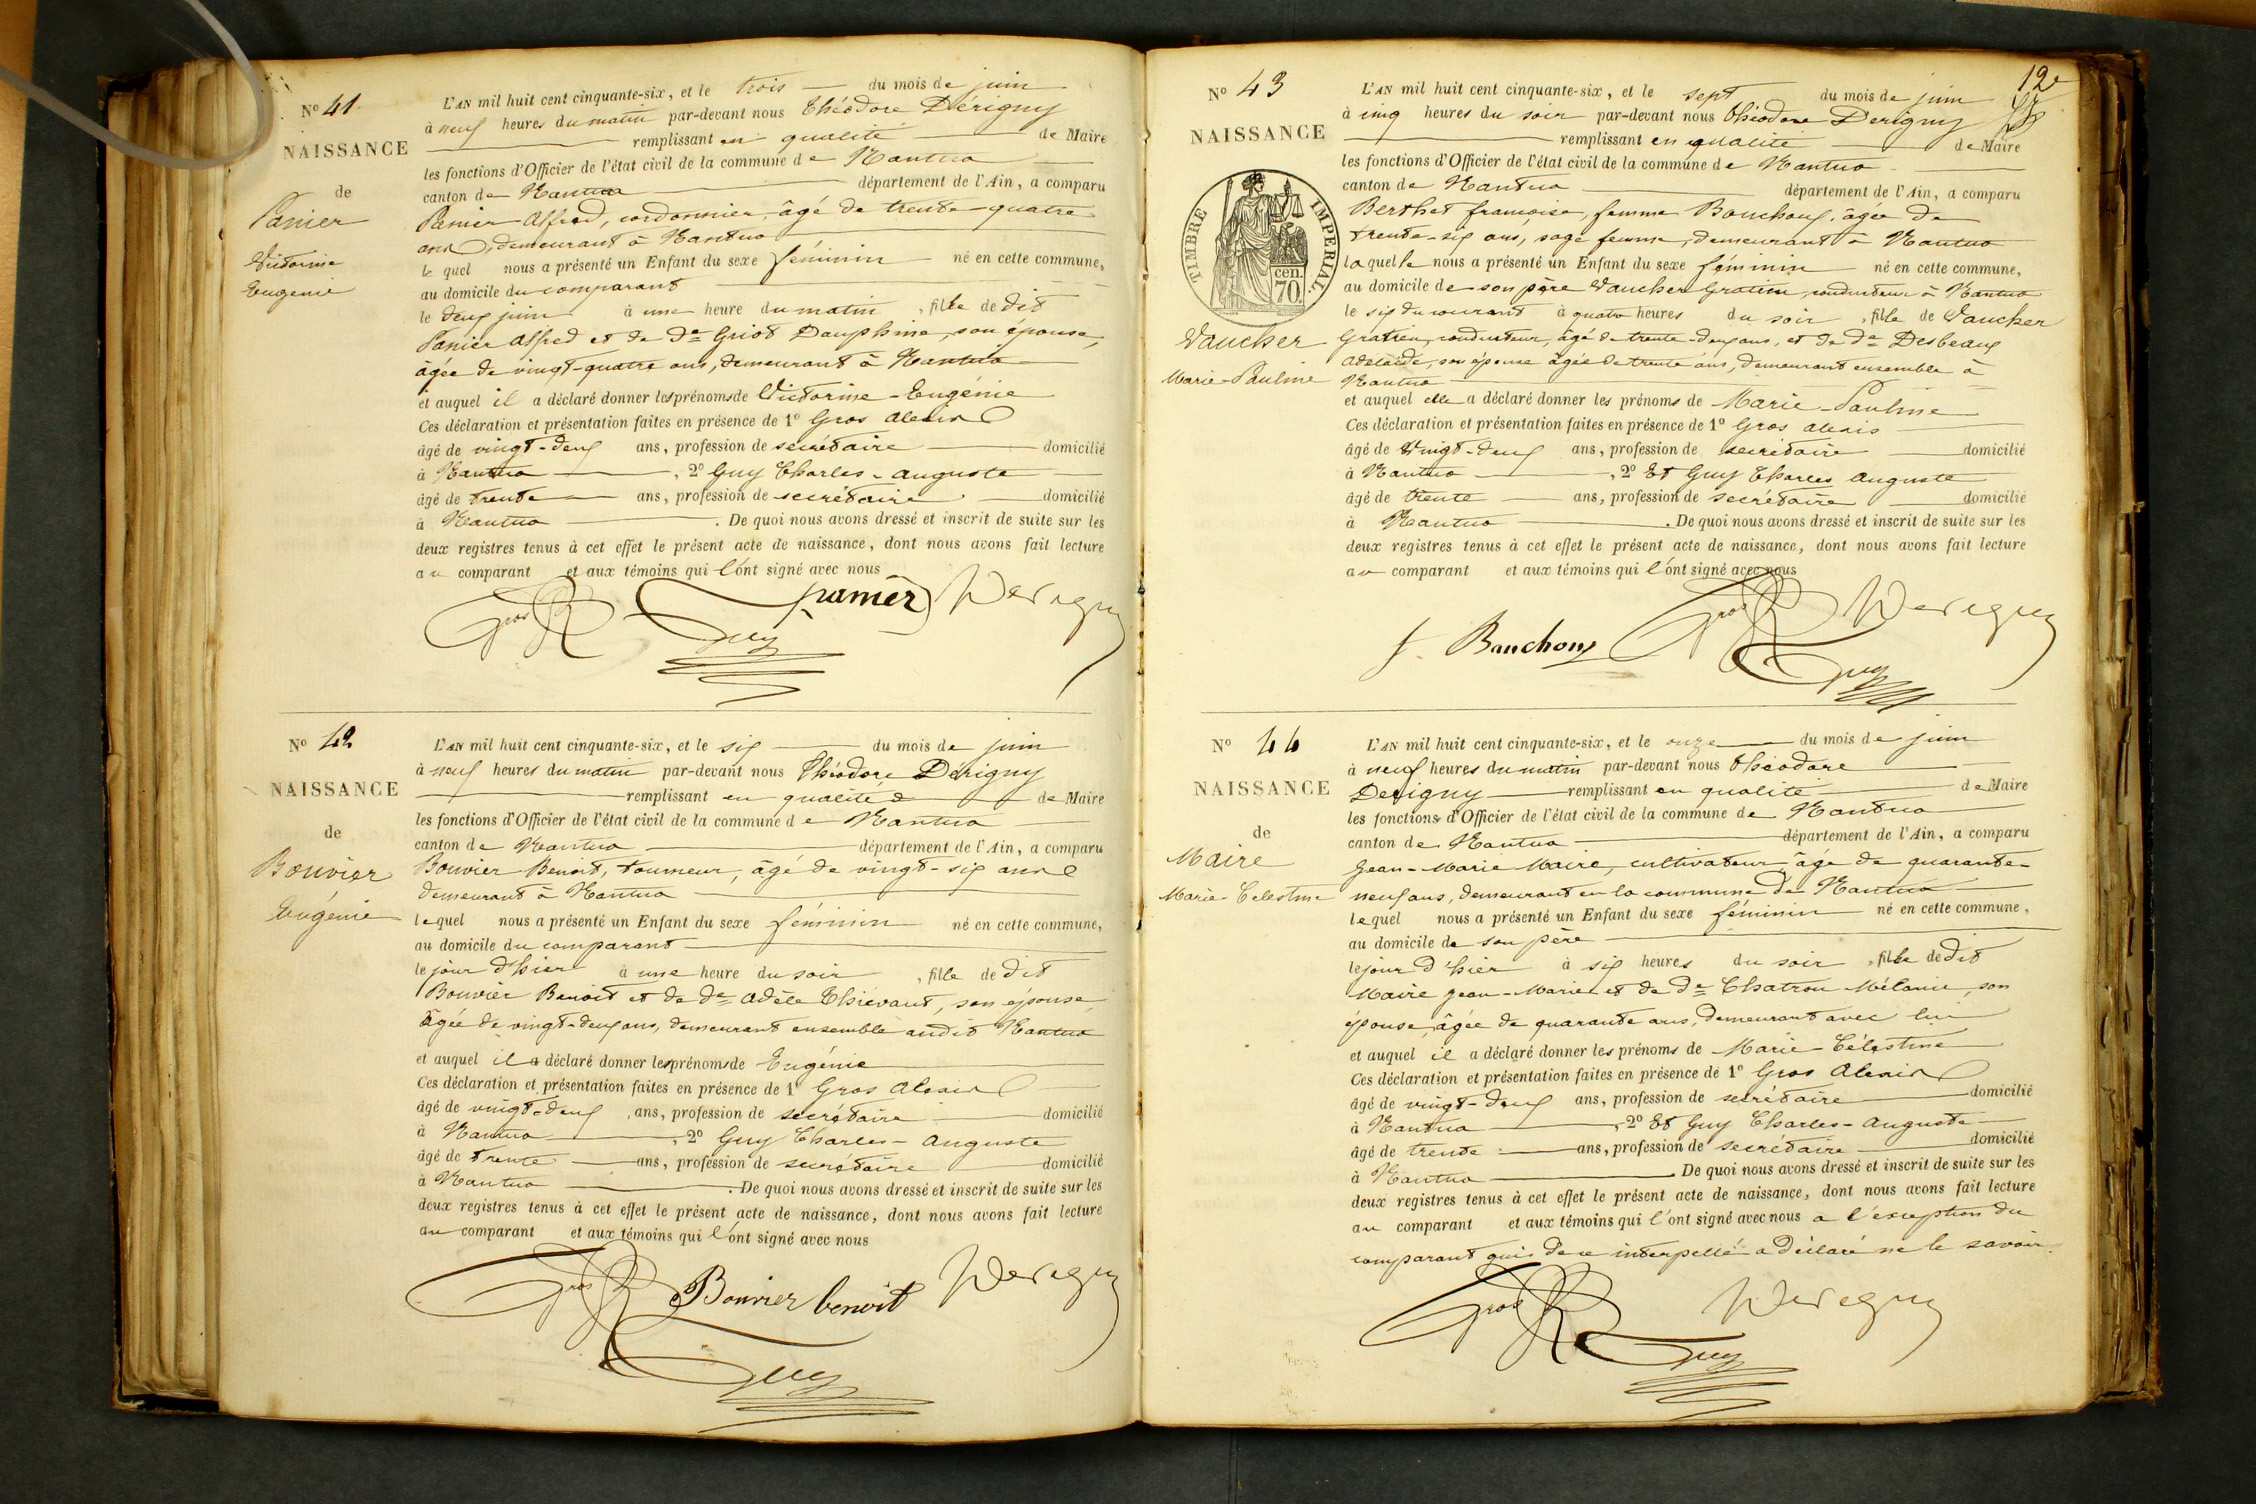 N° 41
NAISSANCE
de
Panier
Victorine
Eugénie
L'AN mil huit cent cinquante-six, et le trois du mois de juin
à neuf heures du matin par-devant nous Théodore Dérigny
remplissant en qualité de Maire
les fonctions d'Officier de l'état civil de la commune de Nantua
canton de Nantua département de l'Ain, a comparu
Panier Alfred, cordonnier, âgé de trente-quatre
ans, demeurant à Nantua
lequel nous a présenté un Enfant du sexe féminin né en cette commune,
au domicile du comparant
le deux juin à une heure du matin, fille de dit
Panier Alfred et de De Griot Dauphine, son épouse,
âgée de vingt-quatre ans, demeurant à Nantua
et auquel il a déclaré donner les prénoms de Victorine-Eugénie
Ces déclaration et présentation faites en présence de 1° Gros Alexis
âgé de vingt-deux ans, profession de secrétaire domicilié
à Nantua, 2° Guy Charles-Auguste
âgé de trente ans, profession de secrétaire domicilié
à Nantua. De quoi nous avons dressé et inscrit de suite sur les
deux registres tenus à cet effet le présent acte de naissance, dont nous avons fait lecture
au comparant et aux témoins qui l'ont signé avec nous
panier Derigny
Gros Guy
N° 42
NAISSANCE
de
Bouvier
Eugénie
L'AN mil huit cent cinquante-six, et le six du mois de juin
à neuf heures du matin par-devant nous Théodore Dérigny
remplissant en qualité de Maire
les fonctions d'Officier de l'état civil de la commune de Nantua
canton de Nantua département de l'Ain, a comparu
Bouvier Benoit, tourneur, âgé de vingt-six ans
demeurant à Nantua
lequel nous a présenté un Enfant du sexe féminin né en cette commune,
au domicile du comparant
le jour d'hier à une heure du soir, fille de dit
Bouvier Benoit et de De Adèle Thiévant, son épouse,
âgée de vingt-deux ans, demeurant ensemble audit Nantua
et auquel il a déclaré donner les prénoms de Eugénie
Ces déclaration et présentation faites en présence de 1° Gros Alexis
âgé de vingt-deux ans, profession de secrétaire domicilié
à Nantua, 2° Guy Charles-Auguste
âgé de trente ans, profession de secrétaire domicilié
à Nantua. De quoi nous avons dressé et inscrit de suite sur les
deux registres tenus à cet effet le présent acte de naissance, dont nous avons fait lecture
au comparant et aux témoins qui l'ont signé avec nous
Gros Bouvier benoit Derigny
Guy
12e
N° 43
NAISSANCE
TIMBRE IMPERIAL
70 cen.
Vaucher
Marie-Pauline
L'AN mil huit cent cinquante-six, et le sept du mois de juin
à cinq heures du soir par-devant nous Théodore Derigny
remplissant en qualité de Maire
les fonctions d'Officier de l'état civil de la commune de Nantua
canton de Nantua département de l'Ain, a comparu
Berthet françoise, femme Bouchoux, âgée de
trente-six ans, sage femme, demeurant à Nantua
laquelle nous a présenté un Enfant du sexe féminin né en cette commune,
au domicile de son père Vaucher Gratien, conducteur à Nantua
le six du courant à quatre heures du soir, fille de Vaucher
Gratien, conducteur, âgé de trente-deux ans, et de De Desbeaux
Adélaïde, son épouse âgée de trente ans, demeurant ensemble à
Nantua
et auquel elle a déclaré donner les prénoms de Marie-Pauline
Ces déclaration et présentation faites en présence de 1° Gros Alexis
âgé de vingt-deux ans, profession de secrétaire domicilié
à Nantua, 2° Et Guy Charles Auguste
âgé de trente ans, profession de secrétaire domicilié
à Nantua. De quoi nous avons dressé et inscrit de suite sur les
deux registres tenus à cet effet le présent acte de naissance, dont nous avons fait lecture
au comparant et aux témoins qui l'ont signé avec nous
f. Bouchoux Gros Derigny
Guy
N° 44
NAISSANCE
de
Maire
Marie-Célestine
L'AN mil huit cent cinquante-six, et le onze du mois de juin
à neuf heures du matin par-devant nous Théodore
Derigny remplissant en qualité de Maire
les fonctions d'Officier de l'état civil de la commune de Nantua
canton de Nantua département de l'Ain, a comparu
Jean-Marie Maire, cultivateur âgé de quarante-
neuf ans, demeurant en la commune de Nantua
lequel nous a présenté un Enfant du sexe féminin né en cette commune,
au domicile de son père
le jour d'hier à six heures du soir, fille de dit
Maire Jean-Marie et de De Chatron Mélanie, son
épouse, âgée de quarante ans, demeurant avec lui
et auquel il a déclaré donner les prénoms de Marie-Célestine
Ces déclaration et présentation faites en présence de 1° Gros Alexis
âgé de vingt-deux ans, profession de secrétaire domicilié
à Nantua, 2° Et Guy Charles-Auguste
âgé de trente ans, profession de secrétaire domicilié
à Nantua. De quoi nous avons dressé et inscrit de suite sur les
deux registres tenus à cet effet le présent acte de naissance, dont nous avons fait lecture
au comparant et aux témoins qui l'ont signé avec nous a l'exception du
comparant qui de ce interpellé a déclaré ne le savoir.
Gros Derigny
Guy